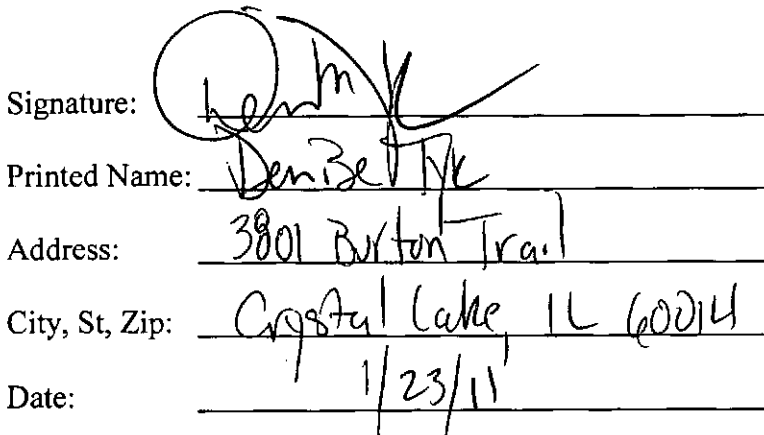 Signature:
Printed Name: Denise Tyk
Address: 3801 Burton Trail
City, St, Zip: Crystal Lake, IL 60014
Date: 1/23/11